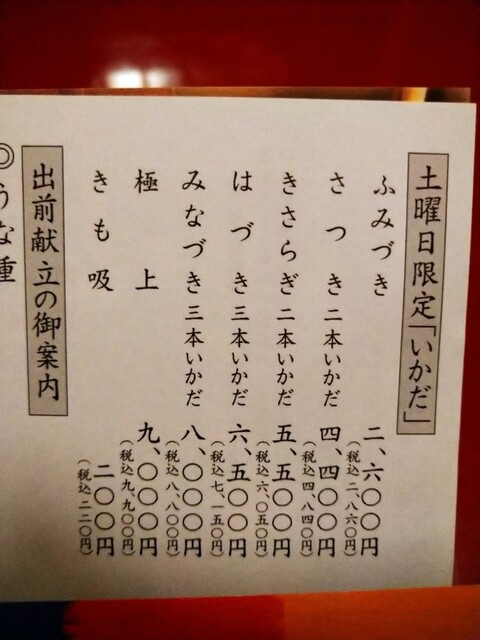 土曜日限定「いかだ」
ふみづき 二、六〇〇円
(税込 二、八六〇円)
さつき 二本いかだ 四、四〇〇円
(税込 四、八四〇円)
きさらぎ 二本いかだ 五、五〇〇円
(税込 六、〇五〇円)
はづき 三本いかだ 六、五〇〇円
(税込 七、一五〇円)
みなづき 三本いかだ 八、〇〇〇円
(税込 八、八〇〇円)
極上 九、〇〇〇円
(税込 九、九〇〇円)
きも吸 二〇〇円
(税込 二二〇円)
出前献立の御案内
◎うな重